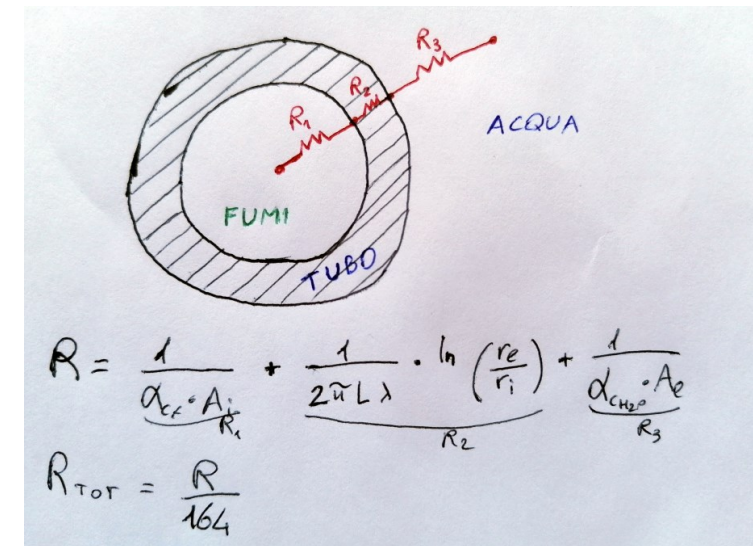 R₃
R₂
R₁
ACQUA
FUMI
TUBO
R = 1/(α_cf · A_i) + 1/(2π L λ) · ln (r_e/r_i) + 1/(α_cH₂O · A_e)
R₁ R₂ R₃
R_TOT = R/164